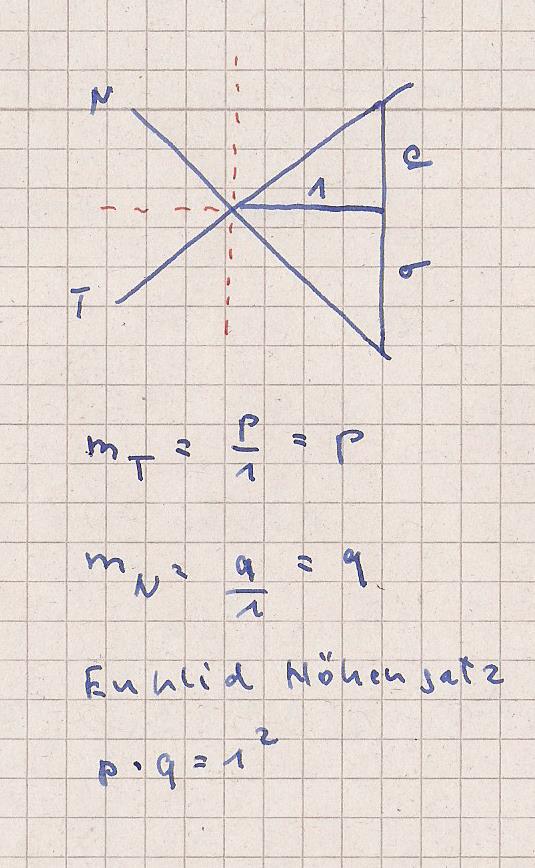 N
1
p
q
T
m_T = p/1 = p
m_N = q/1 = q
Euklid Höhensatz
p · q = 1²